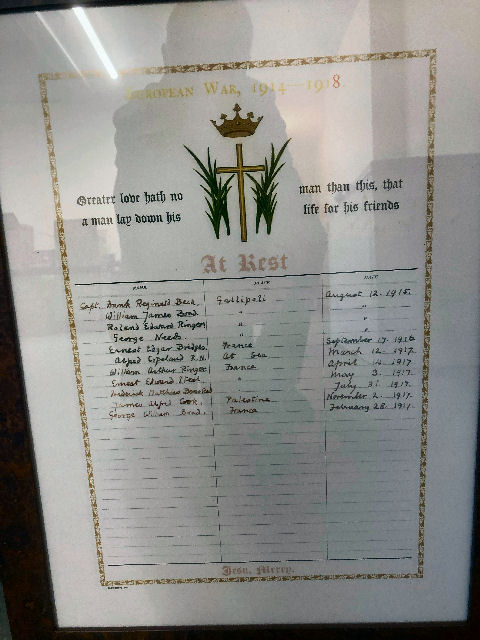 European War, 1914—1918.
Greater love hath no man than this, that
a man lay down his life for his friends
At Rest
NAME PLACE DATE
Capt. Frank Reginald Beck, Gallipoli August 12. 1915.
William James Brad. " "
Roland Edward Ringer " "
George Needs. " "
Ernest Edgar Bridges, France September 17. 1916
Alfred R.N. At Sea March 12. 1917.
William Arthur Ringer France April 14. 1917
Ernest Edward " May 3. 1917.
Frederick Matthew July 31. 1917.
James Alfred Cook, Palestine November 2. 1917.
George William Brad. France February 28. 1917.
Jesu, Mercy.